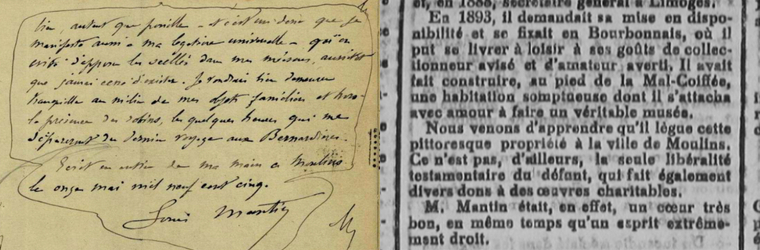 bien autant que possible – et c'est un désir que je
manifeste aussi à ma légataire universelle – qu'on
évite d'apposer les scellés dans ma maison, aussitôt
que j'aurai cessé d'exister. Je voudrais bien demeurer
tranquille au milieu de mes objets familiers et hors
la présence des robins, les quelques heures qui me
sépareront du dernier voyage aux Bernardines.
Écrit en entier de ma main à Moulins
le onze mai mil neuf cent cinq.
Louis Mantin
et, en 1888, secrétaire général à Limoges.
En 1893, il demandait sa mise en dispo-
nibilité et se fixait en Bourbonnais, où il
put se livrer à loisir à ses goûts de collec-
tionneur avisé et d'amateur averti. Il avait
fait construire, au pied de la Mal-Coiffée,
une habitation somptueuse dont il s'attacha
avec amour à faire un véritable musée.
Nous venons d'apprendre qu'il lègue cette
pittoresque propriété à la ville de Moulins.
Ce n'est pas, d'ailleurs, la seule libéralité
testamentaire du défunt, qui fait également
divers dons à des œuvres charitables.
M. Mantin était, en effet, un cœur très
bon, en même temps qu'un esprit extrême-
ment droit.